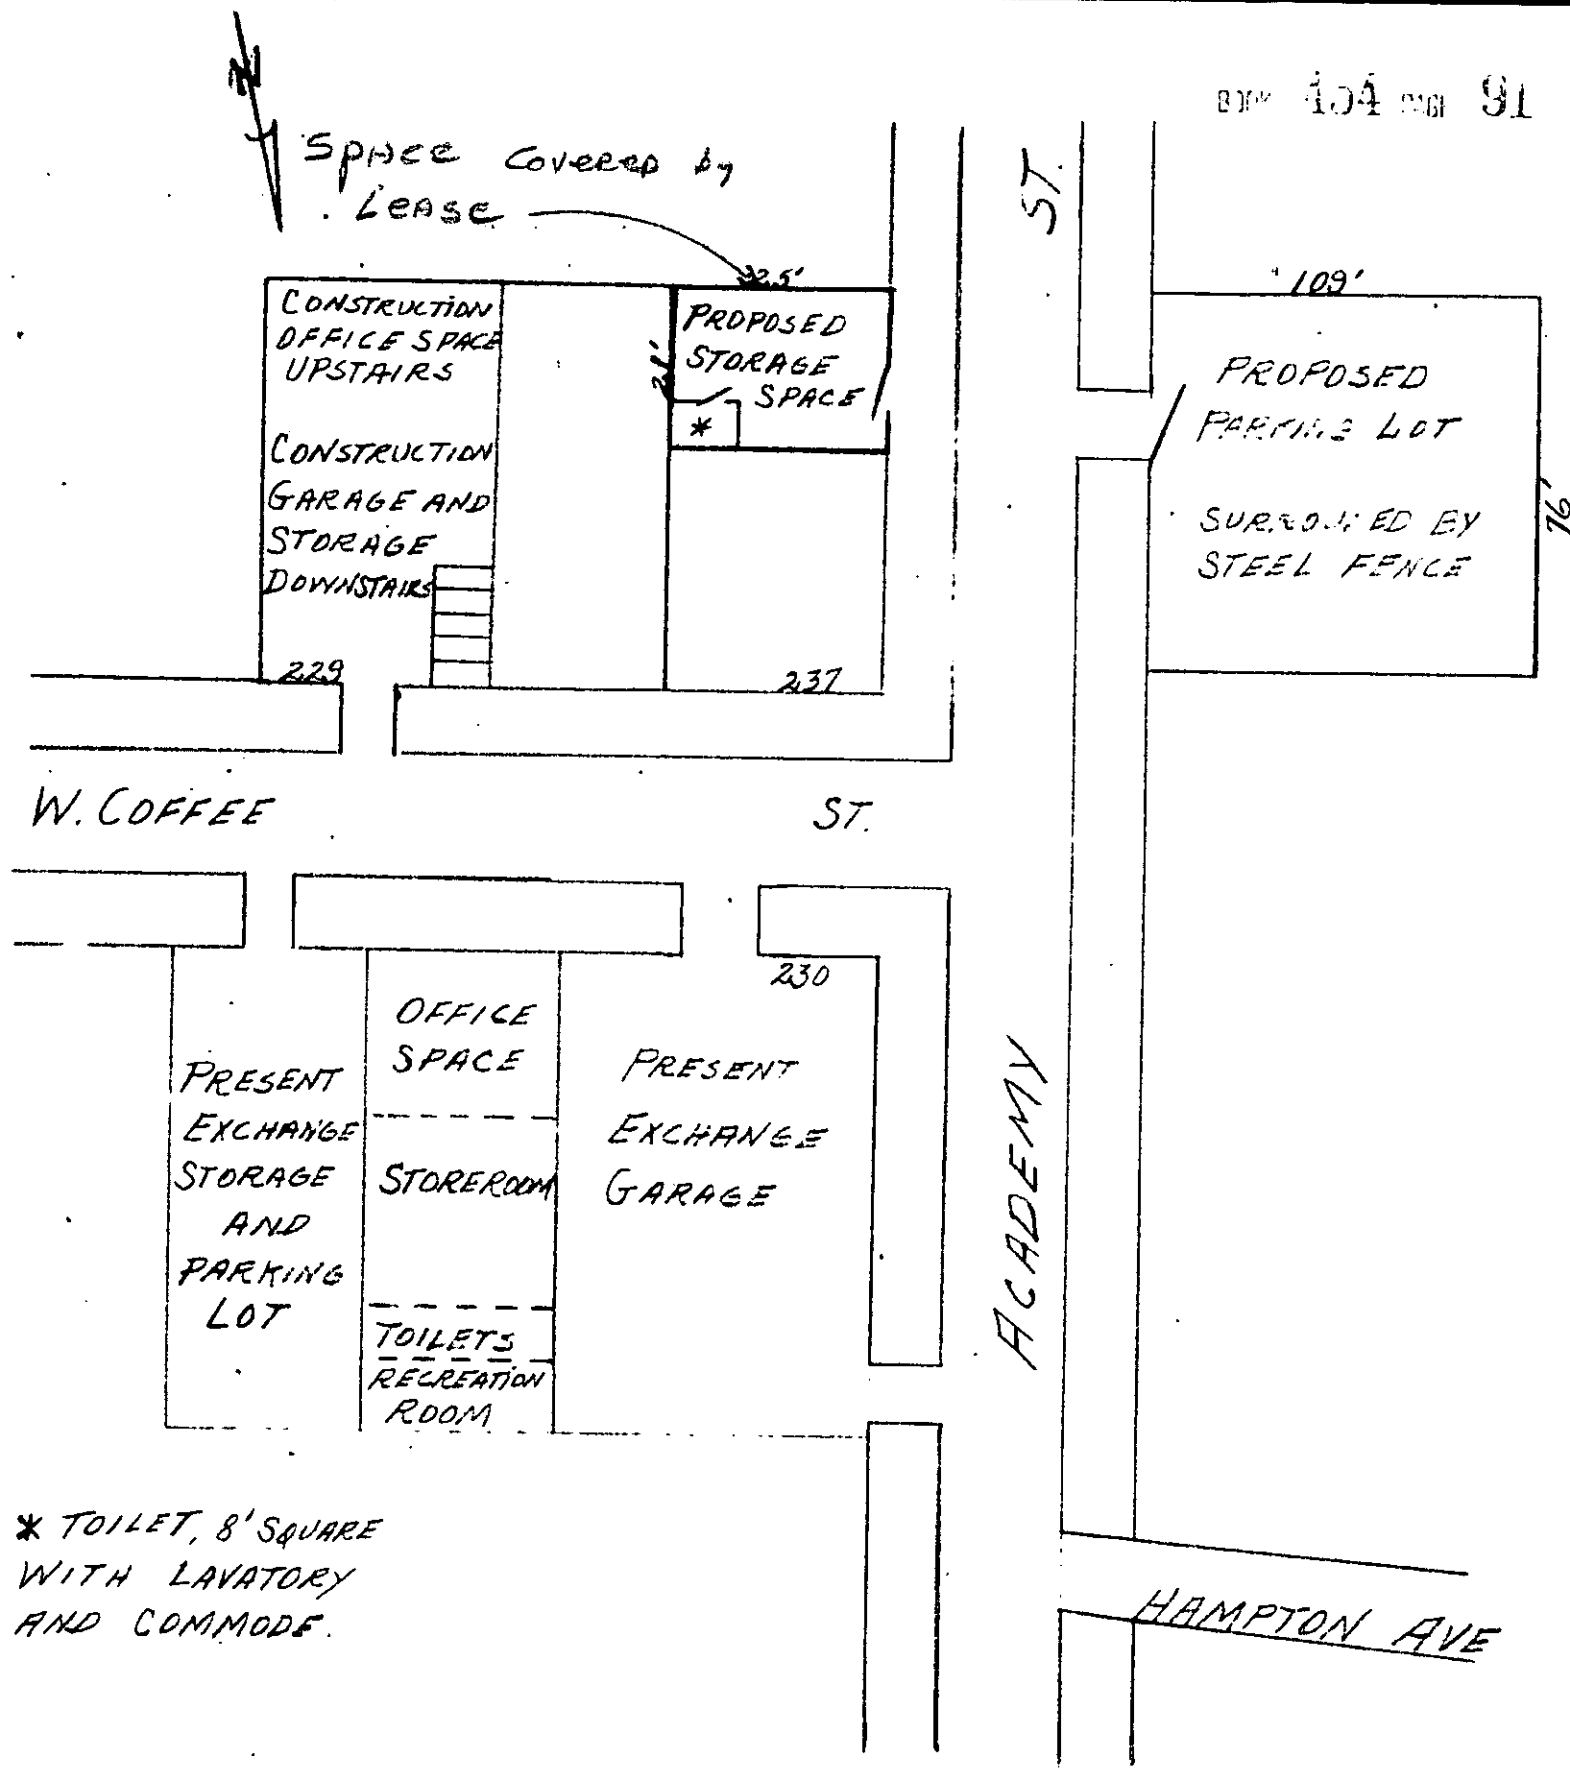 BOOK 454 PAGE 91
N
Space Covered by
Lease
25'
21'
CONSTRUCTION
OFFICE SPACE
UPSTAIRS
CONSTRUCTION
GARAGE AND
STORAGE
DOWNSTAIRS
229
PROPOSED
STORAGE
SPACE
*
237
ST.
109'
PROPOSED
PARKING LOT
SURROUNDED BY
STEEL FENCE
76'
W. COFFEE ST.
230
PRESENT
EXCHANGE
STORAGE
AND
PARKING
LOT
OFFICE
SPACE
STOREROOM
TOILETS
RECREATION
ROOM
PRESENT
EXCHANGE
GARAGE
ACADEMY
HAMPTON AVE
* TOILET, 8' SQUARE
WITH LAVATORY
AND COMMODE.